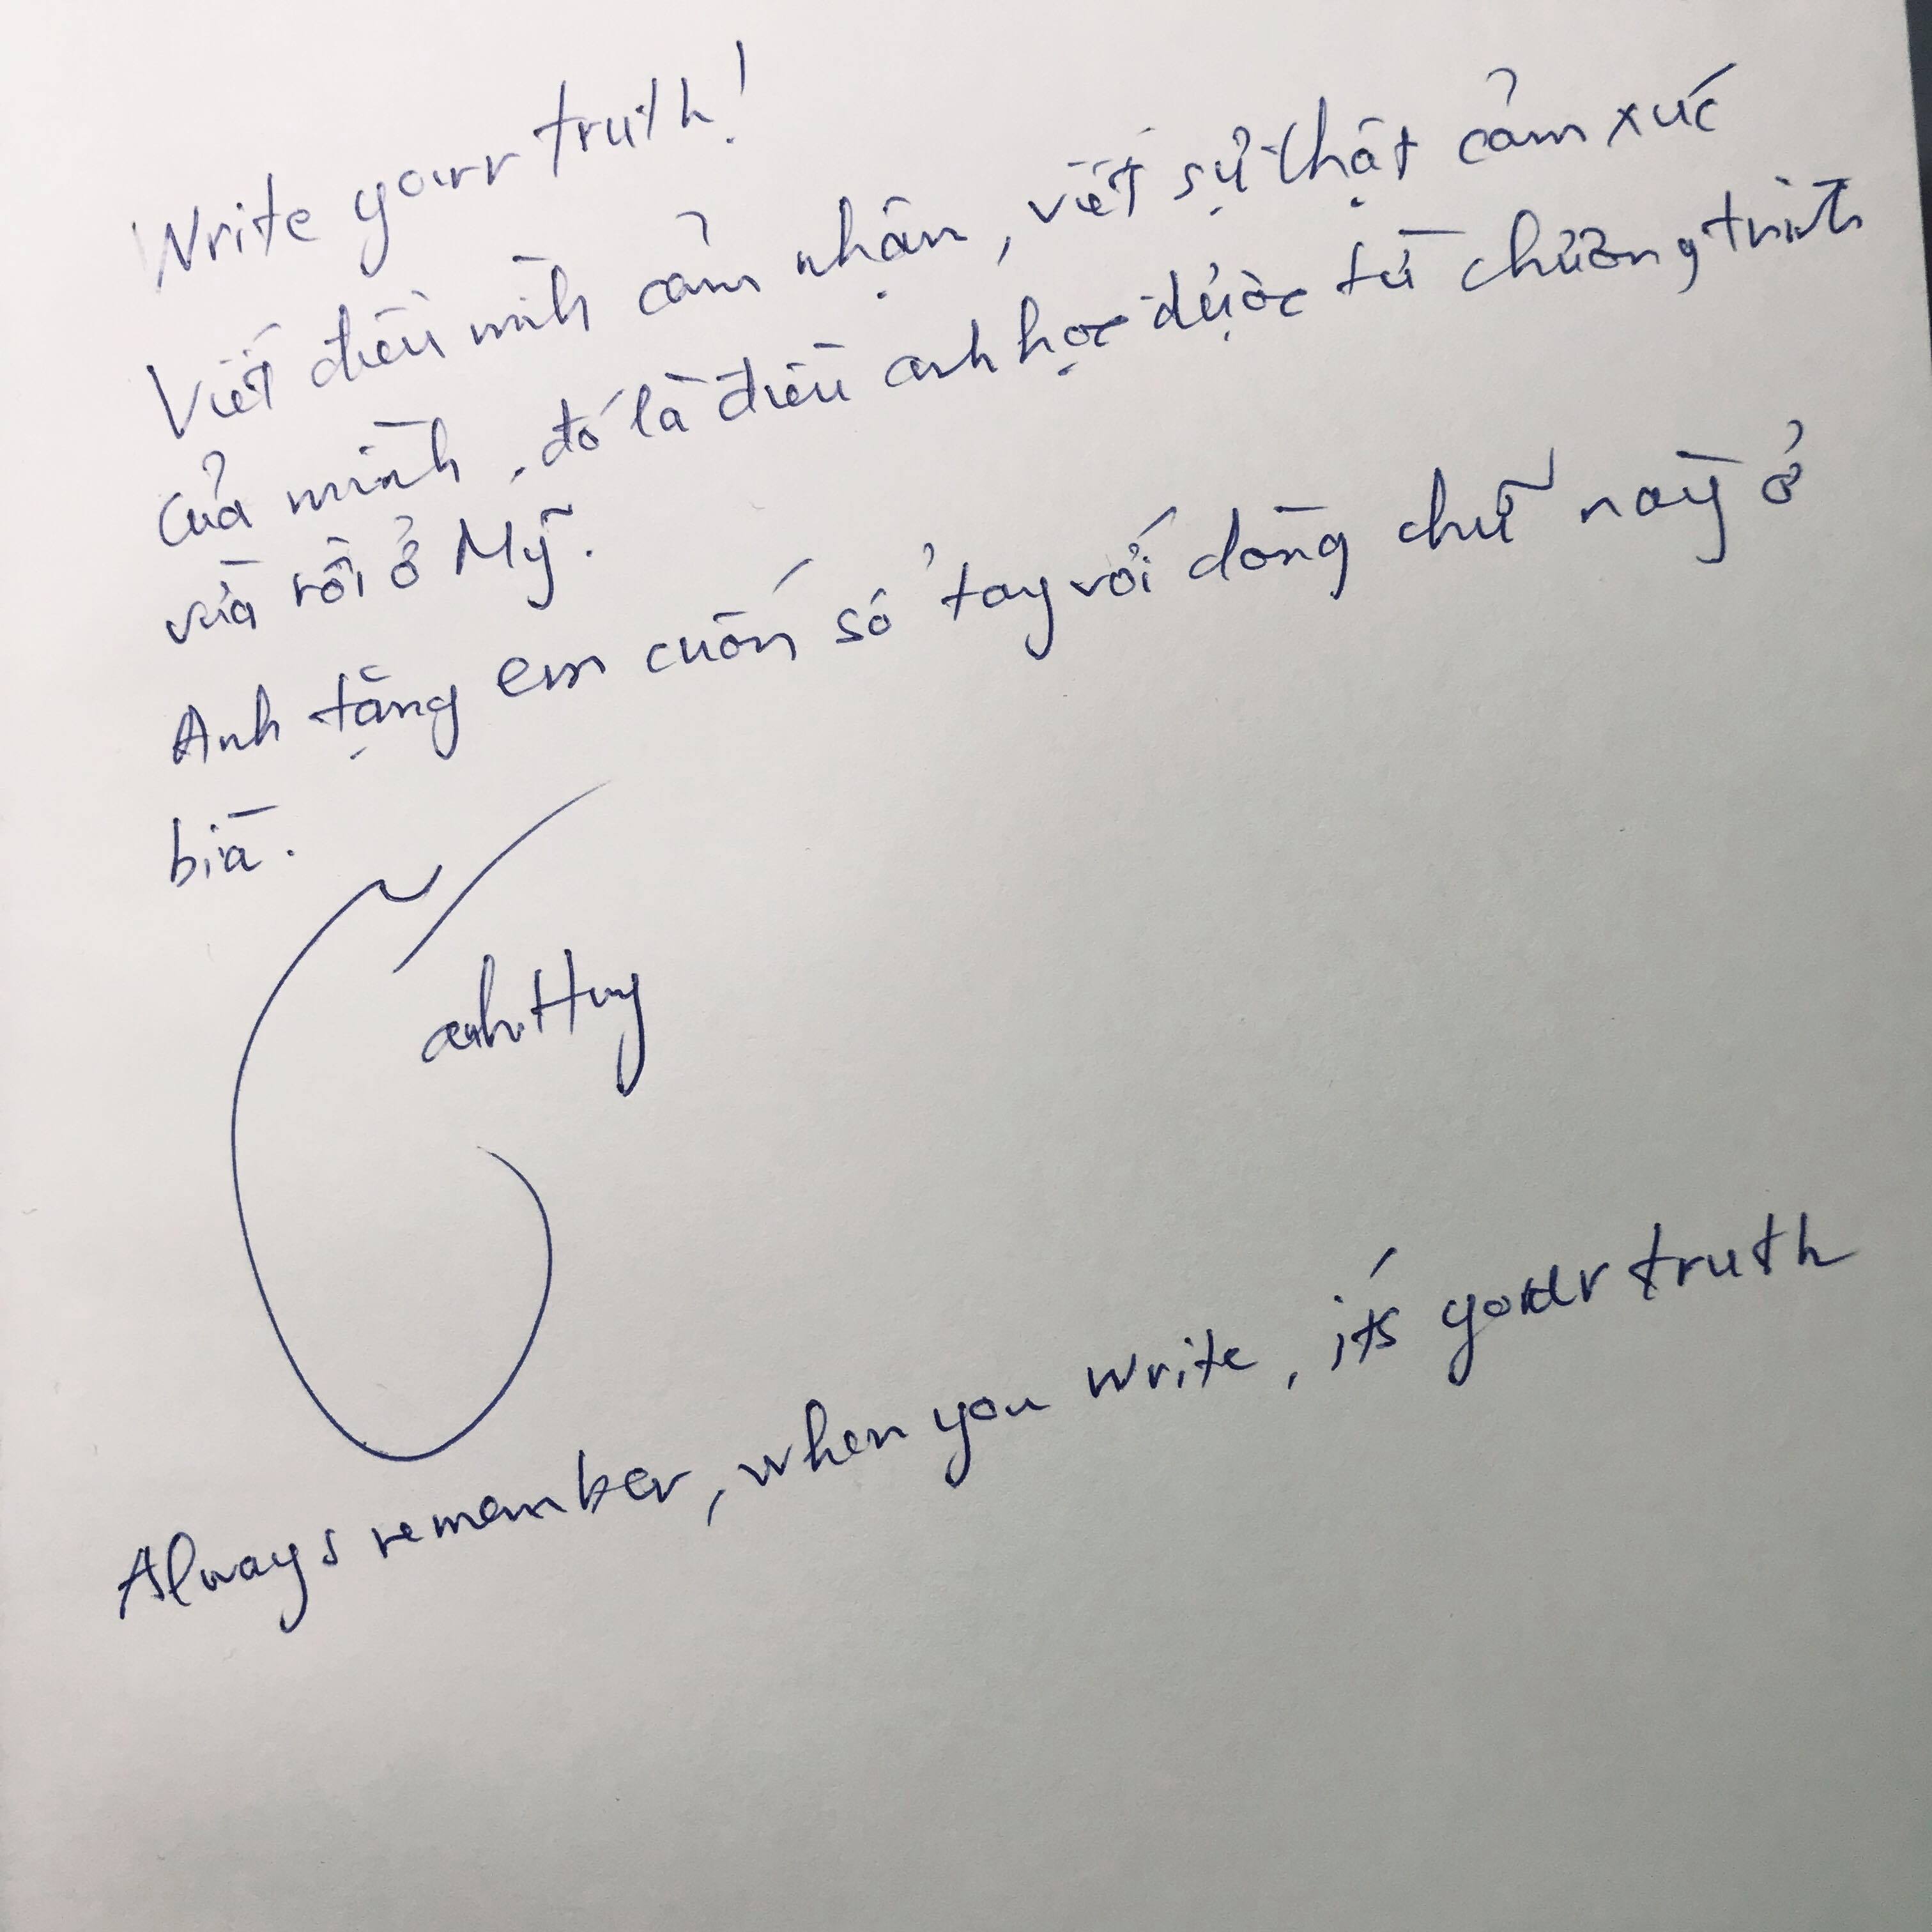 Write your truth!
Viết điều mình cảm nhận, viết sự thật cảm xúc
của mình, đó là điều anh học được từ chương trình
vừa rồi ở Mỹ.
Anh tặng em cuốn sổ tay với dòng chữ này ở
bìa.
anh Huy
Always remember, when you write, it's your truth